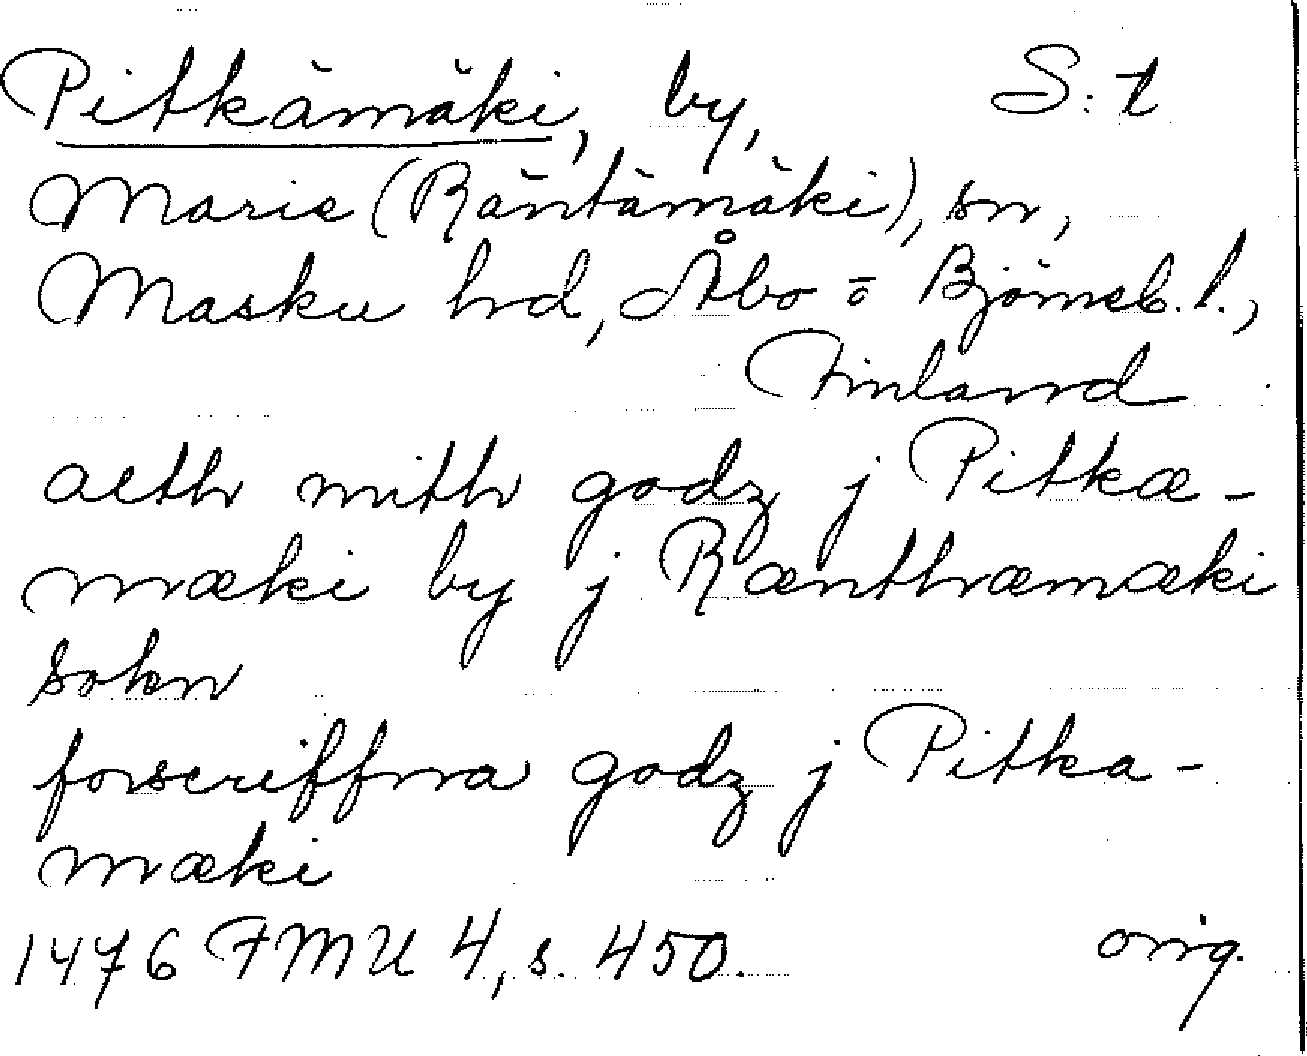 Pitkämäki, by, S:t
Marie (Räntämäki), sn,
Masku hd, Åbo o Björneb. l.,
Finland
aeth mith godz j Pitkæ-
mæki by j Rænthæmæki
sokn
forscriffna godz j Pitka-
mæki
1476 FMU 4, s. 450. orig.